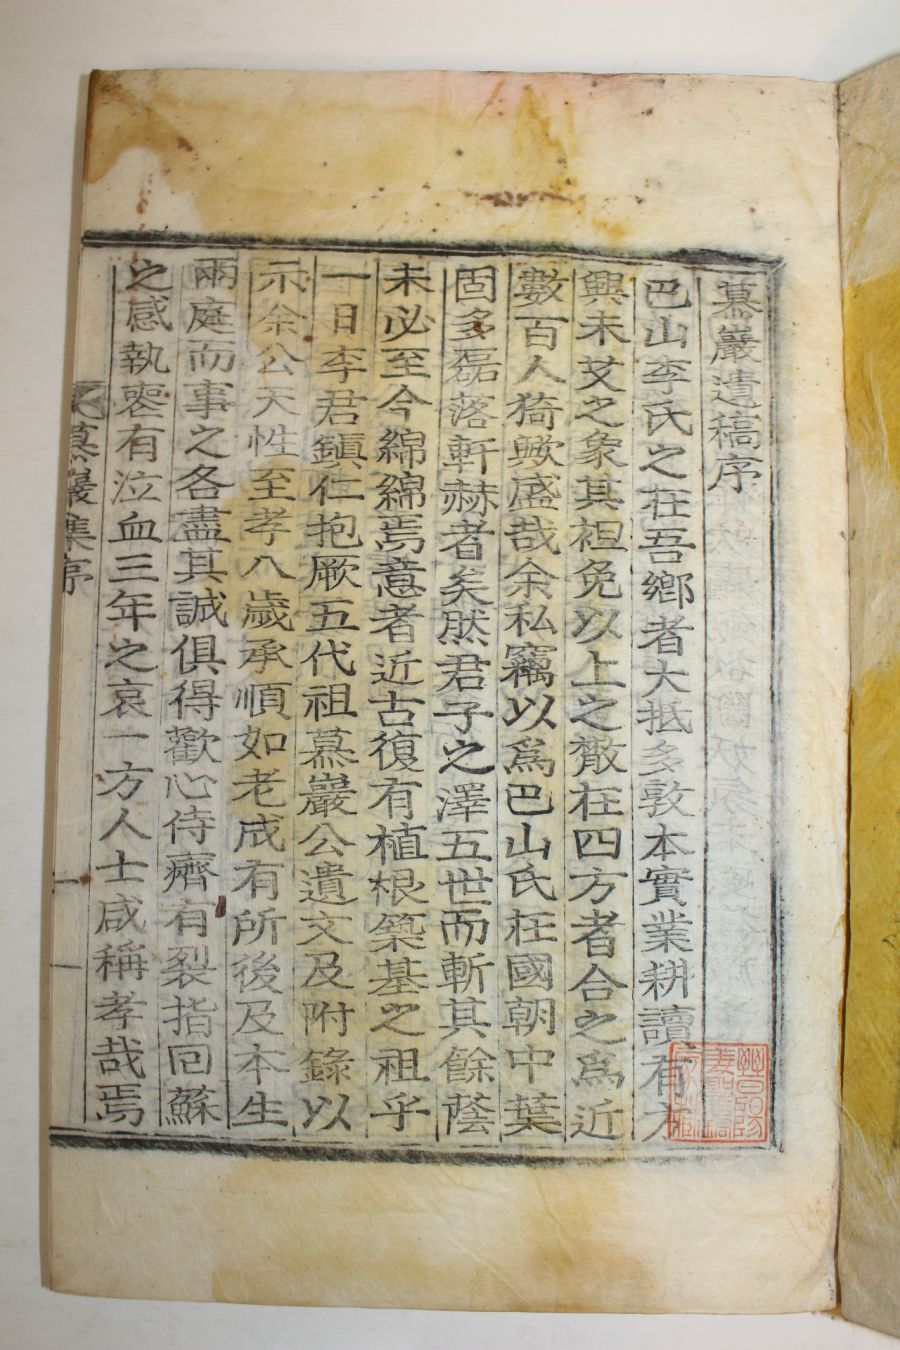 慕巖遺稿序
巴山李氏之在吾鄉者大抵多敦本實業耕讀有方
興未艾之象其袒免以上之散在四方者合之爲近
數百人猗歟盛哉余私竊以爲巴山氏在國朝中葉
固多磊落軒赫者矣然君子之澤五世而斬其餘蔭
未必至今綿綿焉意者近古復有植根築基之祖乎
一日李君鎭仁抱厥五代祖慕巖公遺文及附錄以
示余公天性至孝八歲承順如老成有所後及本生
兩庭而事之各盡其誠俱得歡心侍癠有裂指回蘇
之感執喪有泣血三年之哀一方人士咸稱孝哉焉
慕巖集序 一